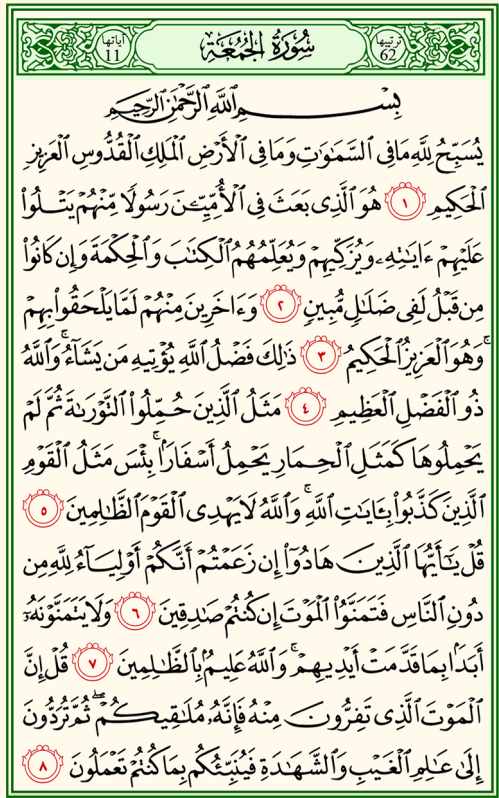 ترتيبها 62 سُورَةُ الجُمُعَةِ آياتها 11
بِسْمِ ٱللَّهِ ٱلرَّحْمَٰنِ ٱلرَّحِيمِ
يُسَبِّحُ لِلَّهِ مَا فِى ٱلسَّمَٰوَٰتِ وَمَا فِى ٱلْأَرْضِ ٱلْمَلِكِ ٱلْقُدُّوسِ ٱلْعَزِيزِ
ٱلْحَكِيمِ ١ هُوَ ٱلَّذِى بَعَثَ فِى ٱلْأُمِّيِّۦنَ رَسُولًا مِّنْهُمْ يَتْلُوا۟
عَلَيْهِمْ ءَايَٰتِهِۦ وَيُزَكِّيهِمْ وَيُعَلِّمُهُمُ ٱلْكِتَٰبَ وَٱلْحِكْمَةَ وَإِن كَانُوا۟
مِن قَبْلُ لَفِى ضَلَٰلٍ مُّبِينٍ ٢ وَءَاخَرِينَ مِنْهُمْ لَمَّا يَلْحَقُوا۟ بِهِمْ
ۚ وَهُوَ ٱلْعَزِيزُ ٱلْحَكِيمُ ٣ ذَٰلِكَ فَضْلُ ٱللَّهِ يُؤْتِيهِ مَن يَشَآءُ ۚ وَٱللَّهُ
ذُو ٱلْفَضْلِ ٱلْعَظِيمِ ٤ مَثَلُ ٱلَّذِينَ حُمِّلُوا۟ ٱلتَّوْرَىٰةَ ثُمَّ لَمْ
يَحْمِلُوهَا كَمَثَلِ ٱلْحِمَارِ يَحْمِلُ أَسْفَارًۢا ۚ بِئْسَ مَثَلُ ٱلْقَوْمِ
ٱلَّذِينَ كَذَّبُوا۟ بِـَٔايَٰتِ ٱللَّهِ ۚ وَٱللَّهُ لَا يَهْدِى ٱلْقَوْمَ ٱلظَّٰلِمِينَ ٥
قُلْ يَٰٓأَيُّهَا ٱلَّذِينَ هَادُوٓا۟ إِن زَعَمْتُمْ أَنَّكُمْ أَوْلِيَآءُ لِلَّهِ مِن
دُونِ ٱلنَّاسِ فَتَمَنَّوُا۟ ٱلْمَوْتَ إِن كُنتُمْ صَٰدِقِينَ ٦ وَلَا يَتَمَنَّوْنَهُۥٓ
أَبَدًۢا بِمَا قَدَّمَتْ أَيْدِيهِمْ ۚ وَٱللَّهُ عَلِيمٌۢ بِٱلظَّٰلِمِينَ ٧ قُلْ إِنَّ
ٱلْمَوْتَ ٱلَّذِى تَفِرُّونَ مِنْهُ فَإِنَّهُۥ مُلَٰقِيكُمْ ۖ ثُمَّ تُرَدُّونَ
إِلَىٰ عَٰلِمِ ٱلْغَيْبِ وَٱلشَّهَٰدَةِ فَيُنَبِّئُكُم بِمَا كُنتُمْ تَعْمَلُونَ ٨